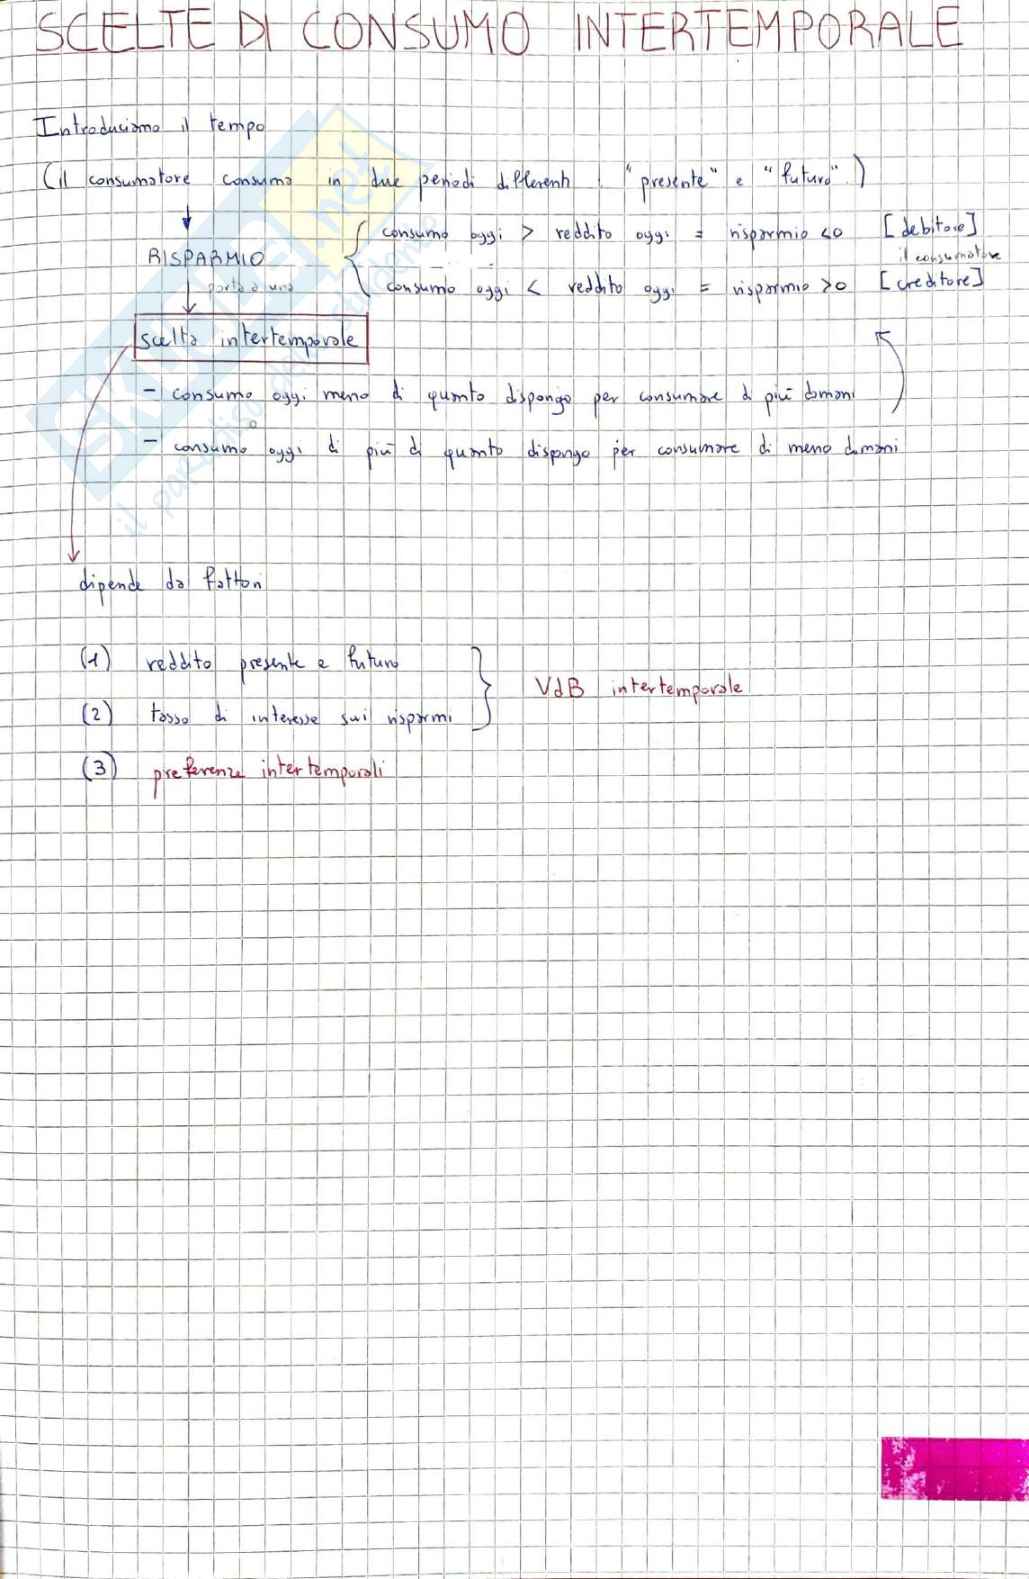 SCELTE DI CONSUMO INTERTEMPORALE
Introduciamo il tempo
(il consumatore consuma in due periodi differenti : "presente" e "futuro".)
consumo oggi > reddito oggi = risparmio <0 [debitore]
RISPARMIO
il consumatore
consumo oggi < reddito oggi = risparmio >0 [creditore]
porta a una
scelta intertemporale
- consumo oggi meno di quanto dispongo per consumare di più domani
- consumo oggi di più di quanto dispongo per consumare di meno domani
SKUOLA.net
il paradiso dello studente
dipende da fattori
(1) reddito presente e futuro
VdB intertemporale
(2) tasso di interesse sui risparmi
(3) preferenze intertemporali